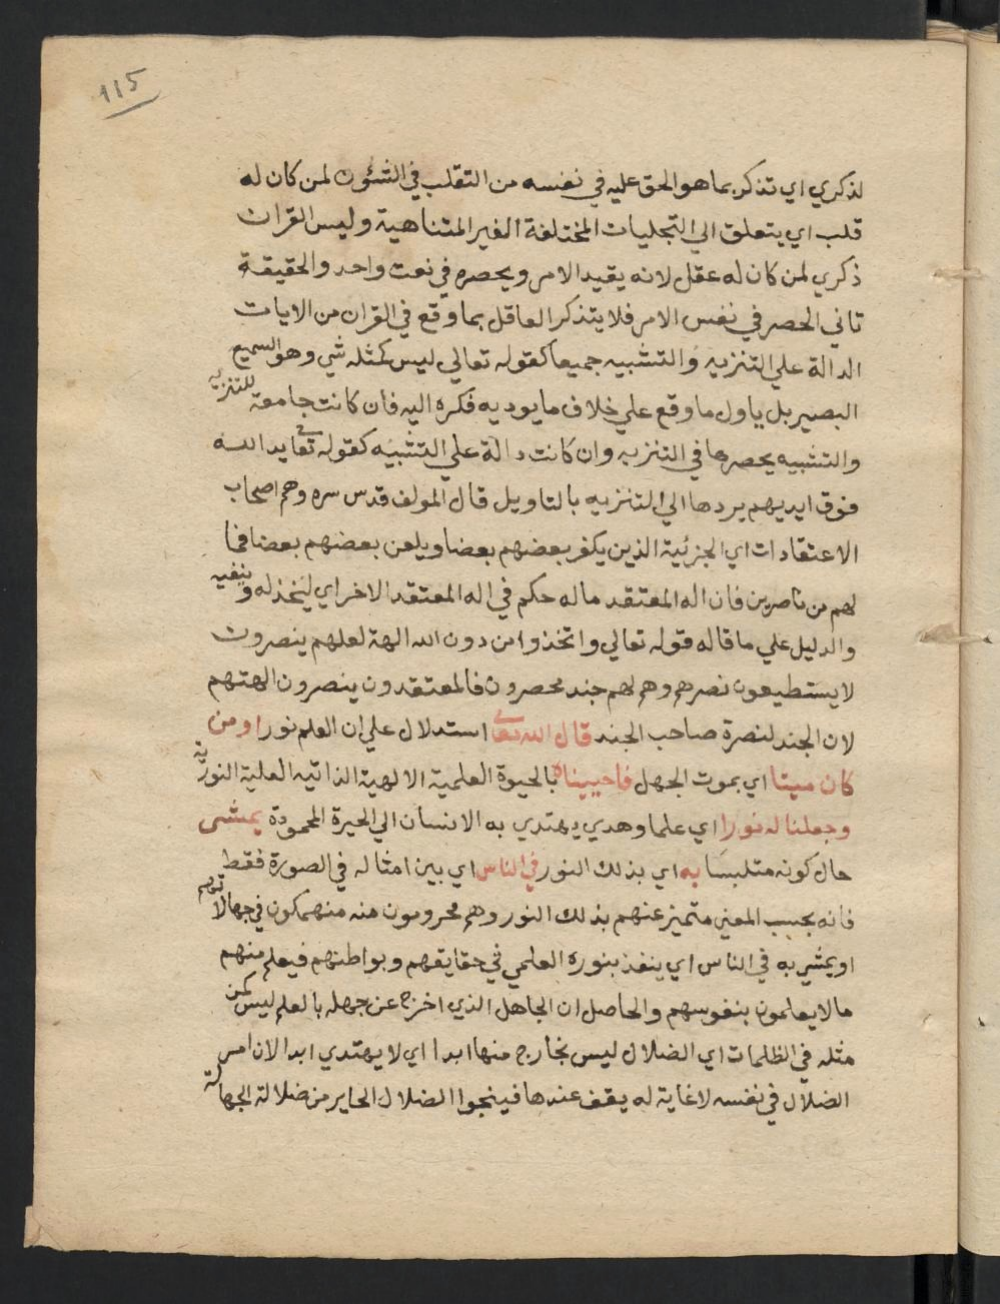 115
لذكري اي تذكر بما هو الحق عليه في نفسه من التقلب في الشئون لمن كان له
قلب اي يتعلق الي التجليات المختلفة الغير المتناهية وليس القران
ذكري لمن كان له عقل لانه يقيد الامر ويحصره في نعت واحد والحقيقة
تابي الحصر في نفس الامر فلا يتذكر العاقل بما وقع في القران من الايات
الدالة علي التنزيه والتشبيه جميعا كقوله تعالي ليس كمثله شي وهو السميع
البصير بل ياول ما وقع علي خلاف ما يوديه فكره اليه فان كانت جامعة للتنزيه
والتشبيه يحصرها في التنزيه وان كانت دالة علي التشبيه كقوله تعا يد الله
فوق ايديهم يردها الي التنزيه بالتاويل قال المولف قدس سره وهم اصحاب
الاعتقادات اي الجزئية الذين يكفر بعضهم بعضا ويلعن بعضهم بعضا فما
لهم من ناصرين فان اله المعتقد ما له حكم في اله المعتقد الاخر اي ليخذله وينفيه
والدليل علي ما قاله قوله تعالي واتخذوا من دون الله الهة لعلهم ينصرون
لا يستطيعون نصرهم وهم لهم جند محصرون فالمعتقدون ينصرون الهتهم
لان الجند لنصرة صاحب الجند قال الله تعا استدلال علي ان العلم نور او من
كان ميتا اي بموت الجهل فاحييناه بالحيوة العلمية الالهية الذاتيه العلية النورية
وجعلنا له نورا اي علما وهدي يهتدي به الانسان الي الحيرة المحمودة يمشى
حال كونه متلبسا به اي بذلك النور في الناس اي بين امثاله في الصورة فقط
فانه بحسب المعني متميز عنهم بذلك النور وهم محرومون منه منهمكون في جهالاتهم
او يمشي به في الناس اي ينفذ بنوره العلمي في حقايقهم وبواطنهم فيعلم منهم
ما لا يعلمون بنفوسهم والحاصل ان الجاهل الذي اخرج عن جهله بالعلم ليس كمن
مثله في الظلمات اي الضلال ليس بخارج منها ابدا اي لا يهتدي ابدا لان امر
الضلال في نفسه لا غاية له يقف عندها فينجوا الضلال الحاير من ضلالة الجهالة